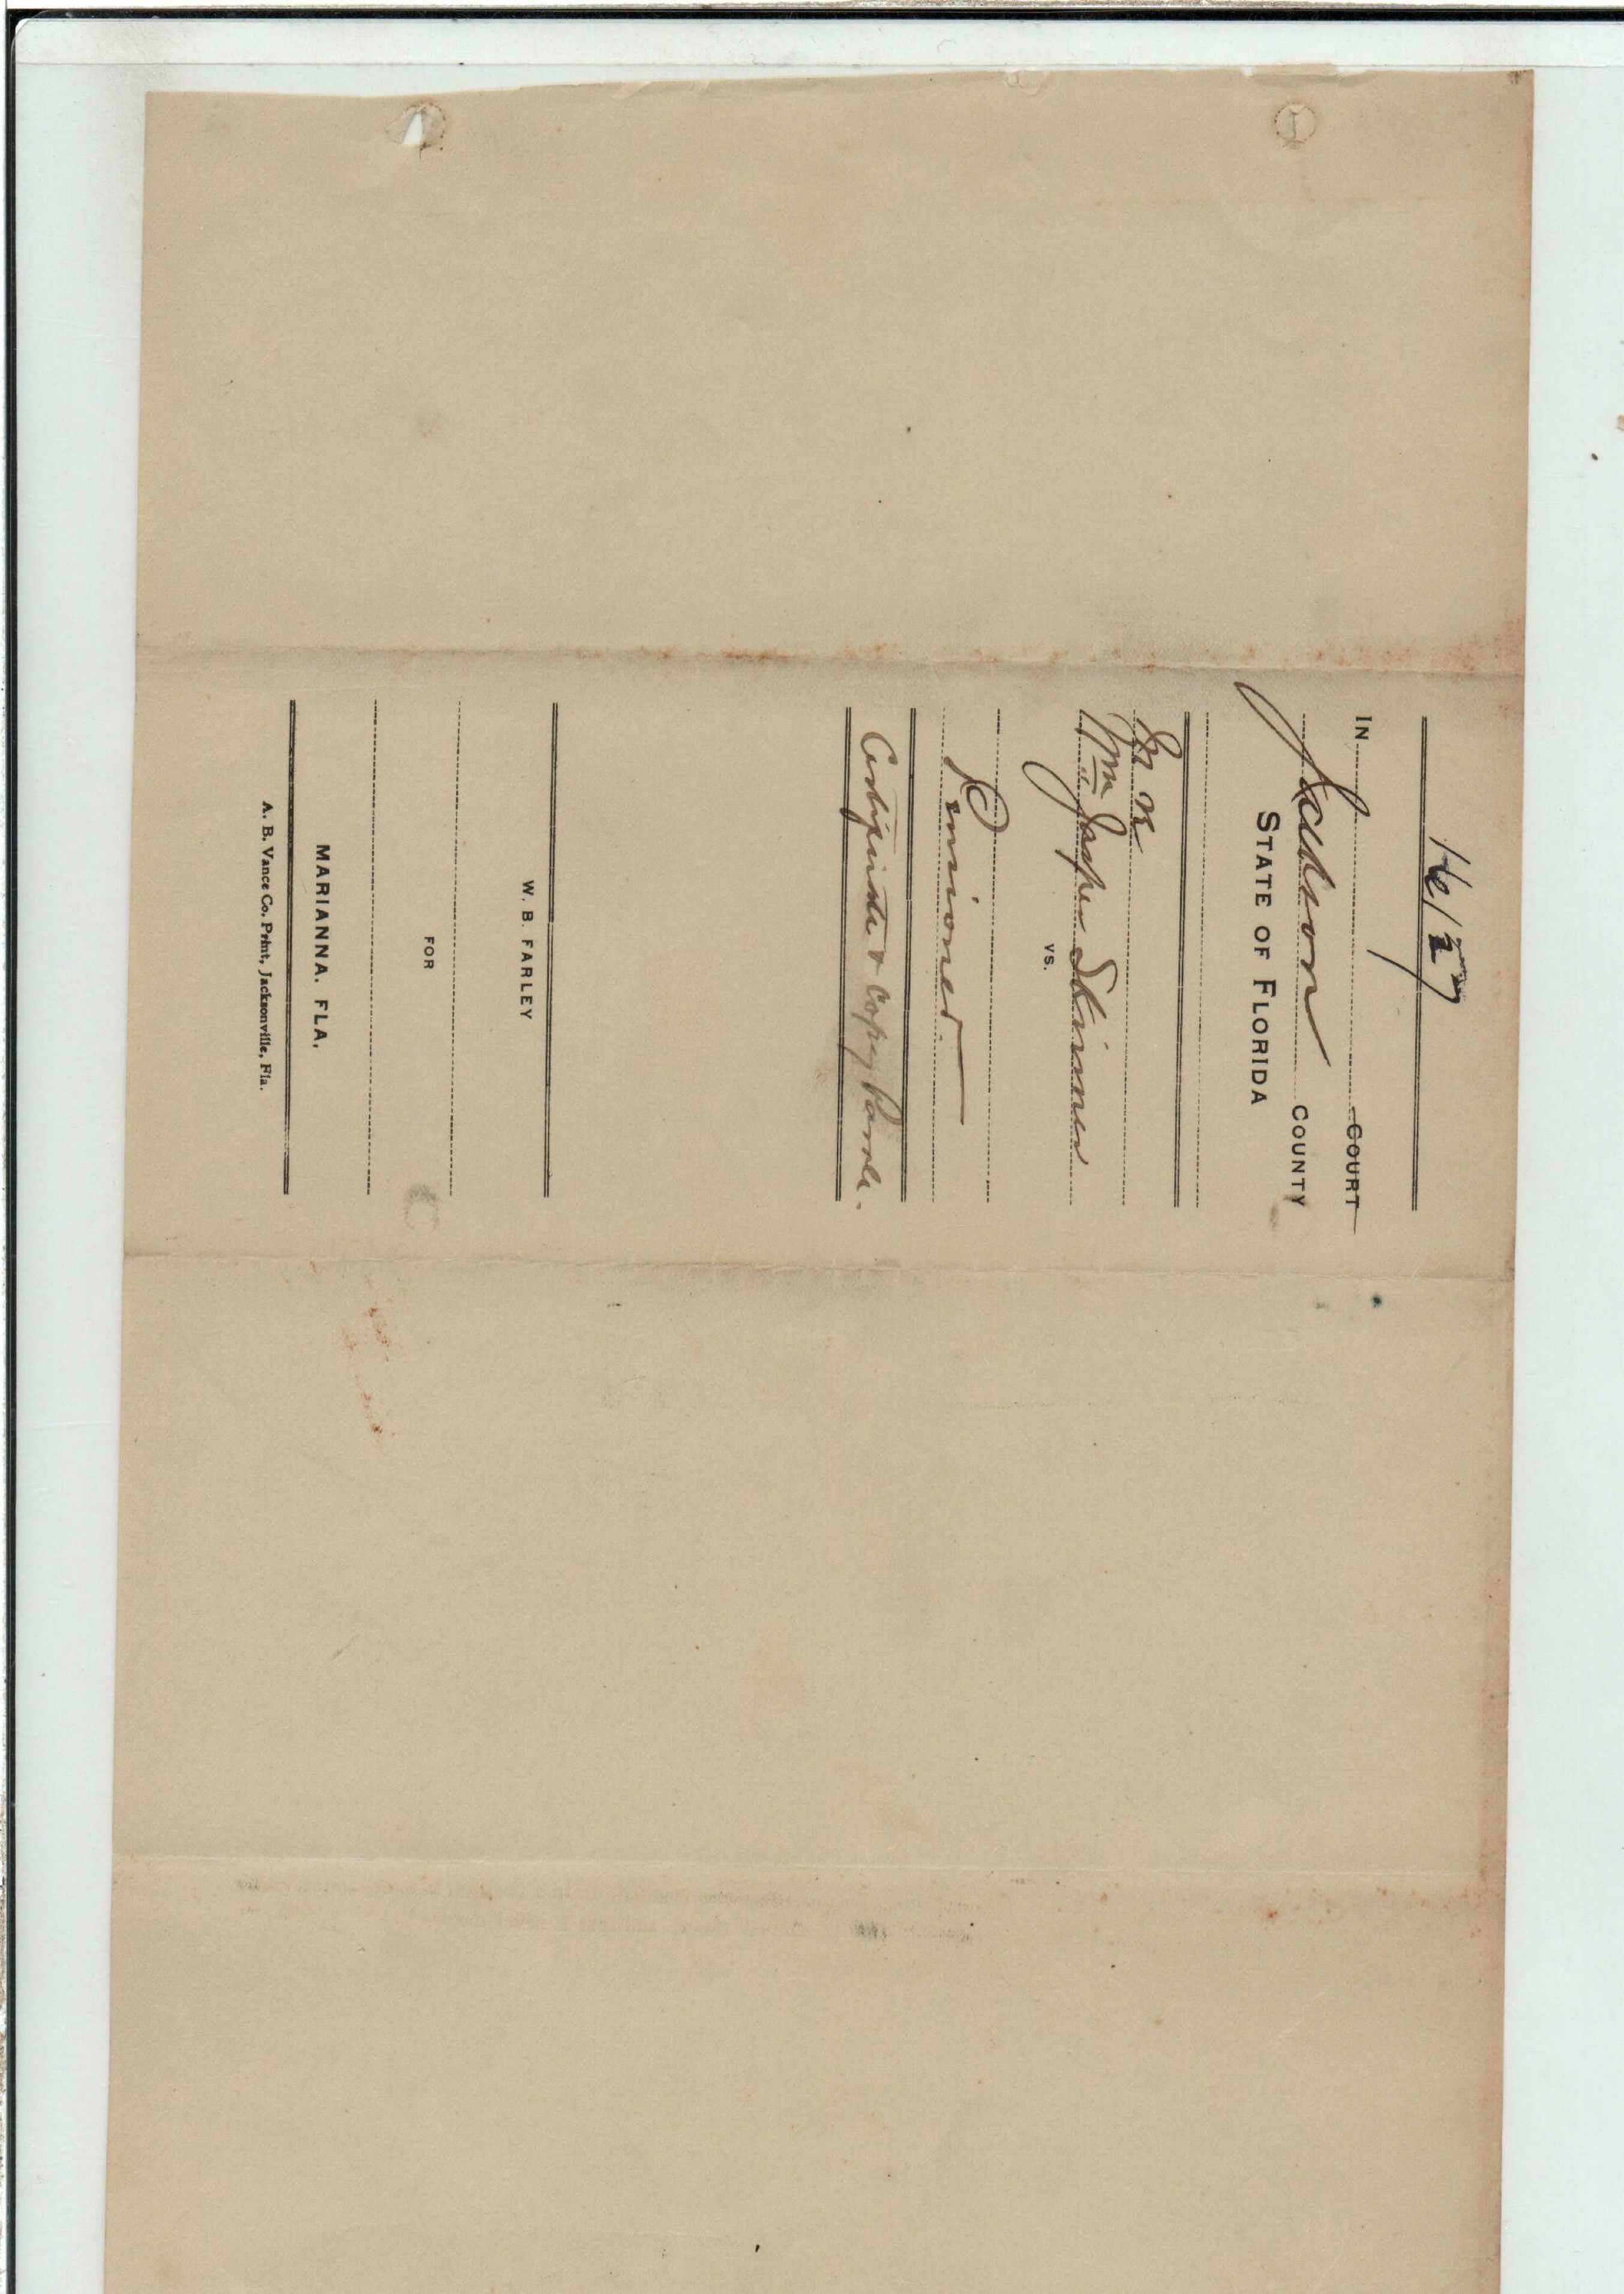 IN COURT
Jackson COUNTY
STATE OF FLORIDA
In re
Wm Jasper Skinner
VS.
Pensioner.
Certificate & copy Parole.
W. B. FARLEY
FOR
MARIANNA. FLA.
A. B. Vance Co. Print, Jacksonville, Fla.